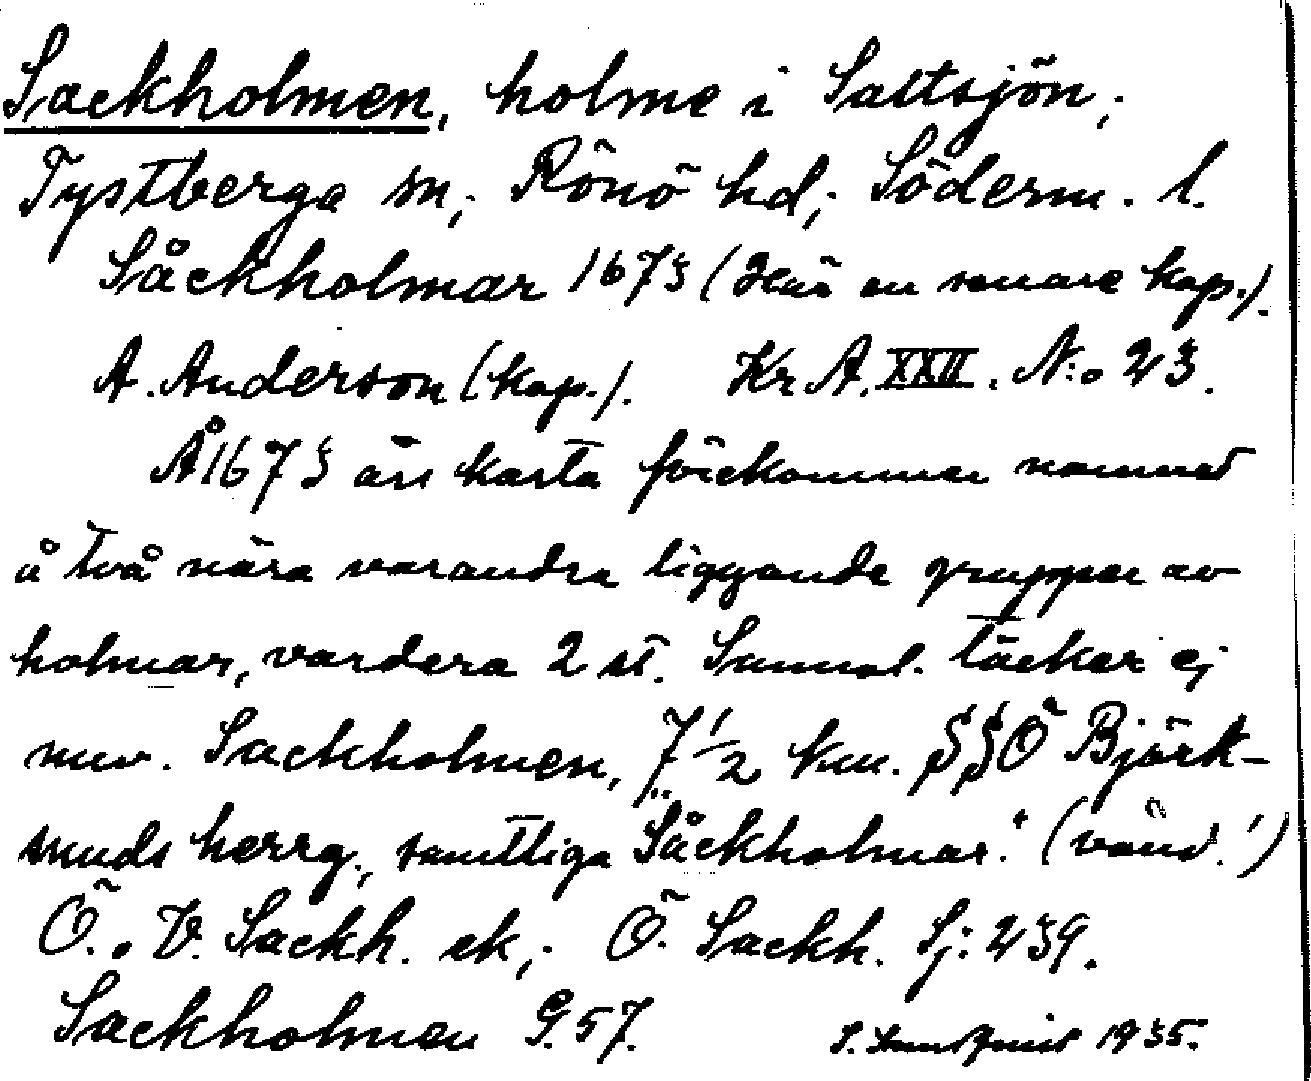 Sackholmen, holme i Saltsjön,
Tystberga sn, Rönö hd, Söderm. l.
Såckholmar 1673 (Här en senare kop.).
A. Anderson (kop.). Kr A. XXII. N:o 23.
Å 1673 års karta förekommer namnet
å två nära varandra liggande grupper av
holmar, vardera 2 st. Samml. täcker ej
nuv. Sackholmen, 7 1/2 km. SSÖ Björk-
sunds herrg., samtliga "Såckholmar." (vänd!)
Ö. o V. Sackh. ek, Ö. Sackh. Sj: 239.
Sackholmen G. 57. 1935.